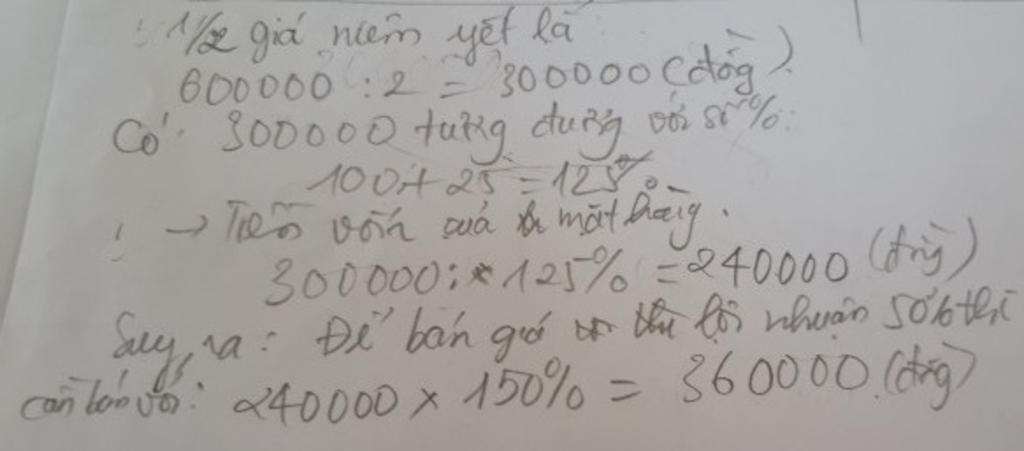 1/2 giá niêm yết là
600000 : 2 = 300000 (đồng)
Có 300000 tương đương với số %:
100 + 25 = 125%
→ Tiền vốn của mặt hàng.
300000 : 125% = 240000 (đồng)
Suy ra: Để bán giá thì lợi nhuận 50% thì
cần bán với: 240000 x 150% = 360000 (đồng)